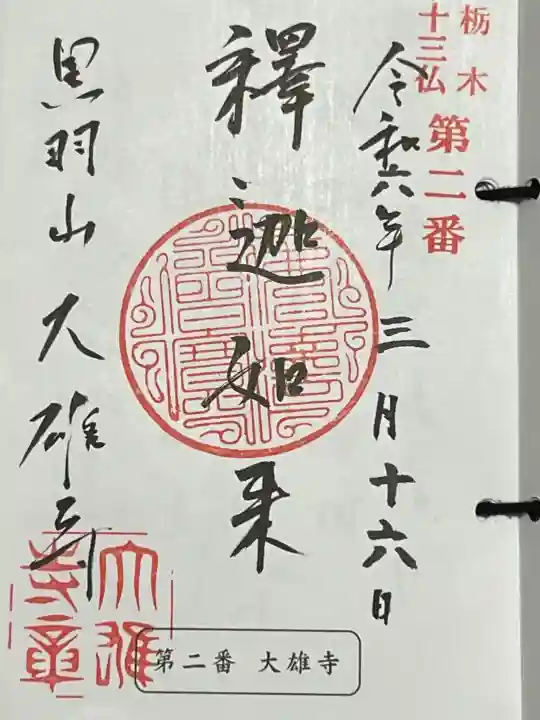 栃木
十三仏
第二番
令和六年三月十六日
釋迦如来
黒羽山大雄寺
第二番 大雄寺